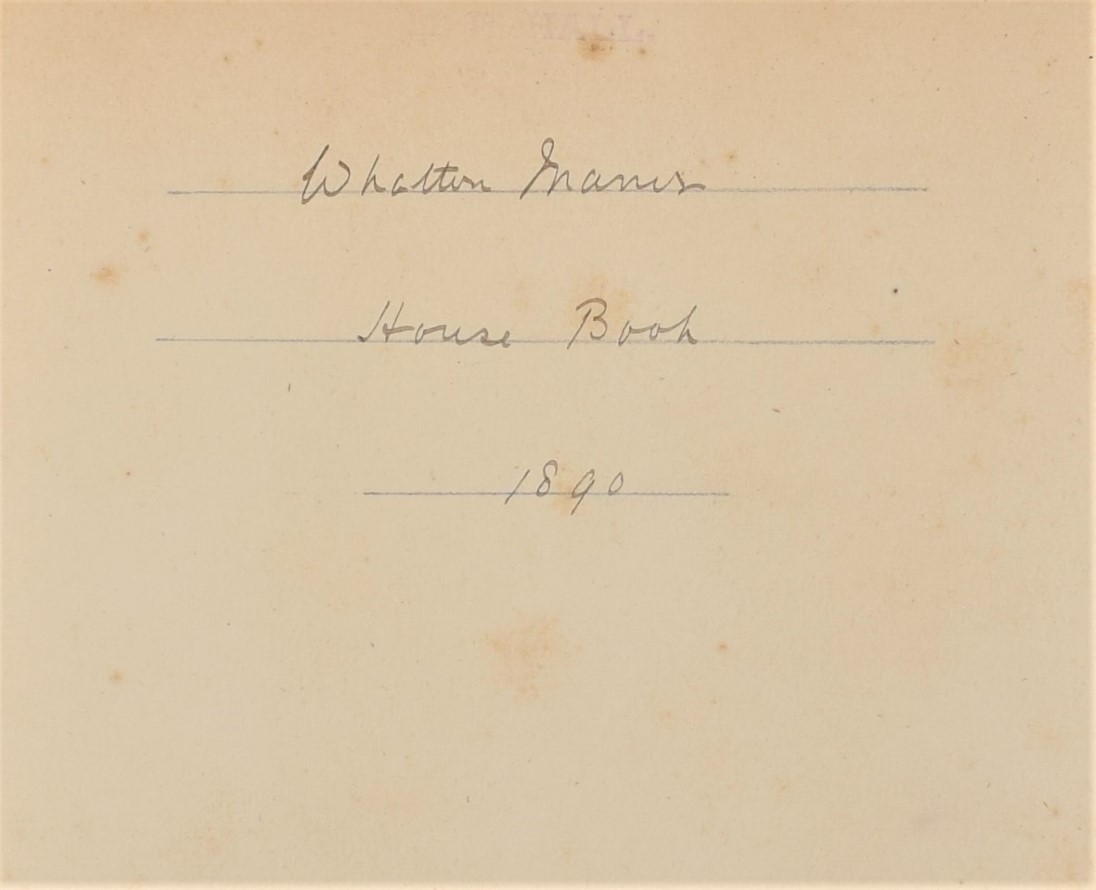 Whatton Manor
House Book
1890